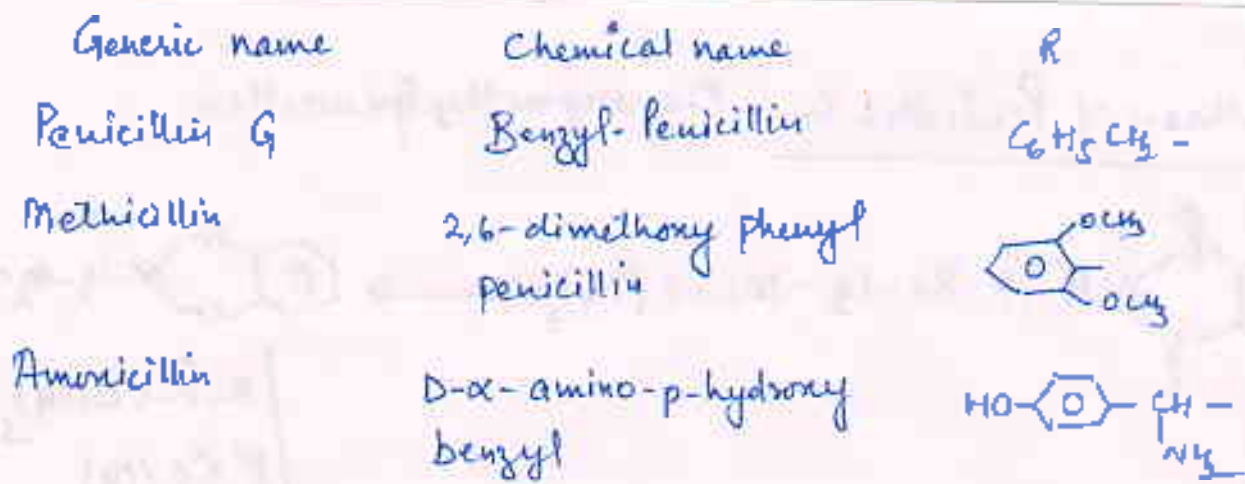 Generic name Chemical name R
Penicillin G Benzyl-Penicillin C6H5CH2 -
Methicillin 2,6-dimethoxy phenyl
penicillin
OCH3
OCH3
Amoxicillin D-α-amino-p-hydroxy
benzyl
HO- -CH-
NH2